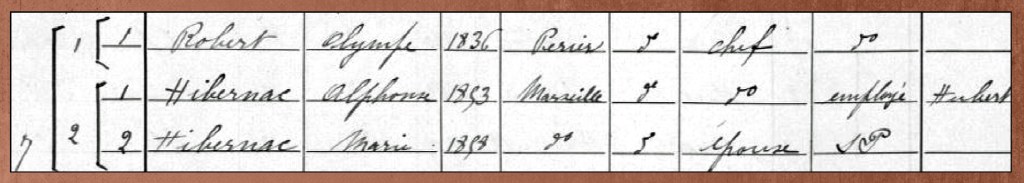 1 1 Robert Olympe 1836 Perier d° chef d°
1 Hibernac Alphonse 1853 Marseille d° d° employé Hubert
7 2 2 Hibernac Marie 1858 d° d° épouse SP